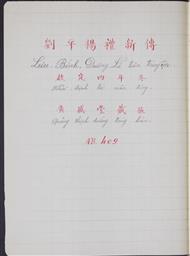 劉平楊禮新傳
Lưu Bình, Dương Lễ tân truyện
啟定四年冬
Khải định tứ niên đông.
廣盛堂藏板
Quảng thịnh đường tàng bản.
AB. 409